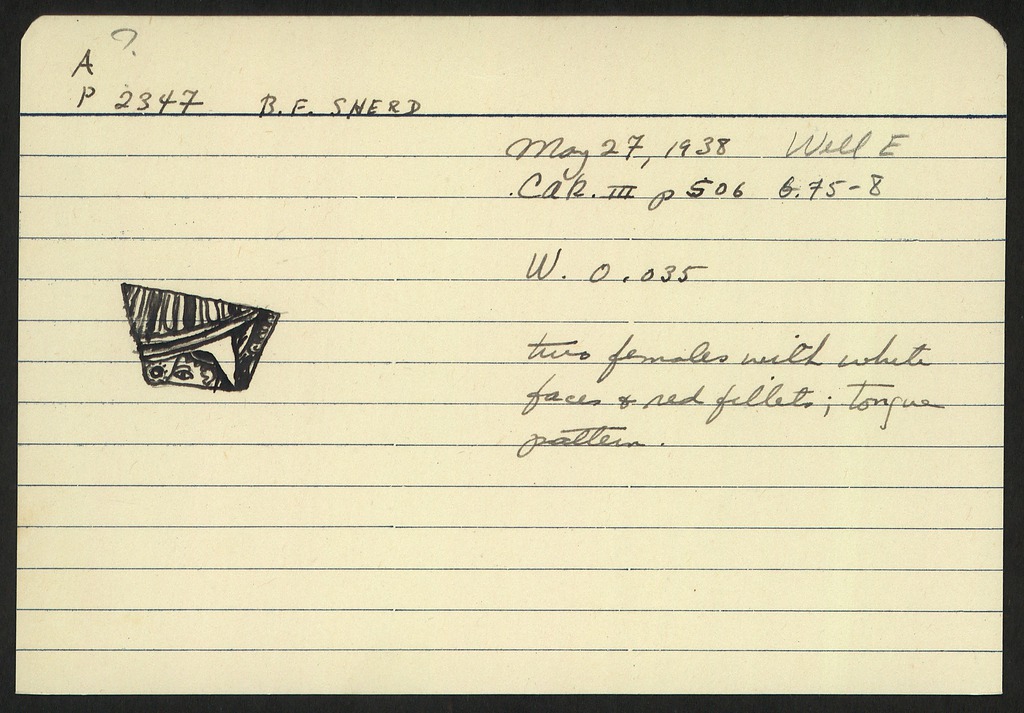 ?
A
P 2347 B.F. SHERD
May 27, 1938 Well E
CAR. III p 506 6.75-8
W. 0.035
two females with white
faces & red fillets; tongue
pattern.